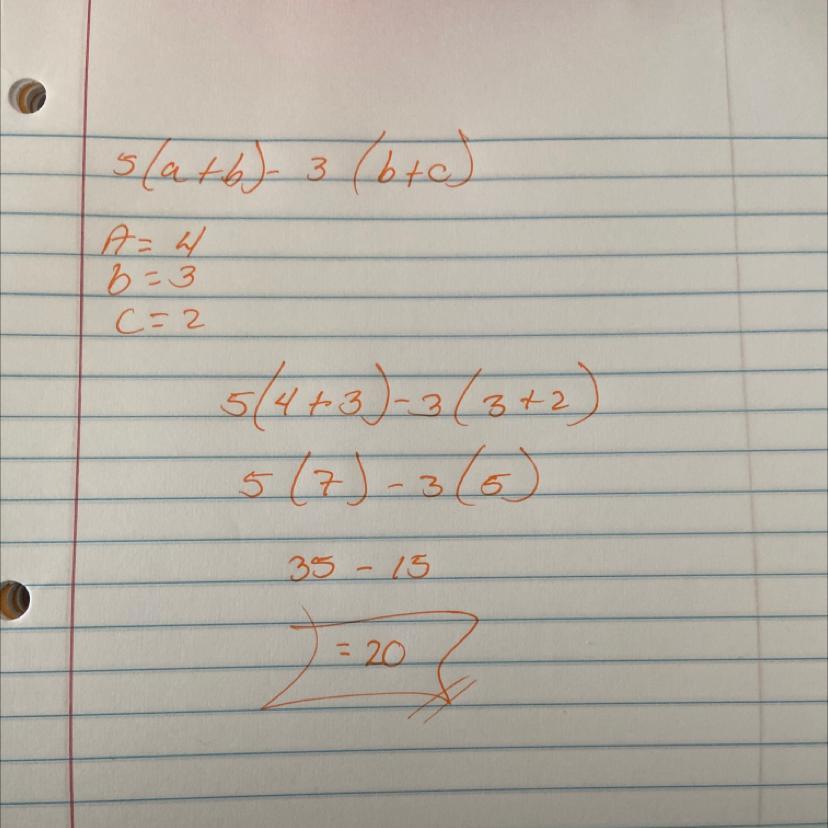 5(a+b)- 3 (b+c)
A= 4
b=3
C=2
5(4+3)-3(3+2)
5(7)-3(5)
35-15
=20